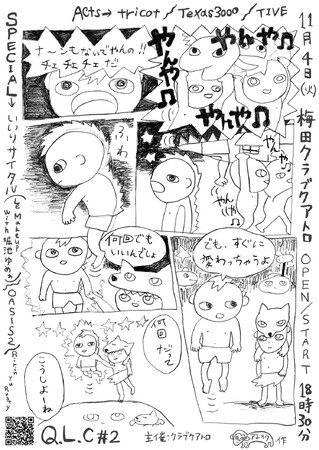 Acts→ tricot / Texas3000 / TIVE
11月4日(火) 梅田クラブクアトロ OPEN/START 18時30分
SPECIAL→いいリサイタル
with 堀池ゆめぁ
OASIS2
ナ〜ンもないでやんの!!
チェチェチェだ
やんや♫
やんや♫
やんや♫
やんや♫
やんや♫
ふわ
何回でも
いいんでしょ
でも、すぐに
変わっちゃうよ
何回
だって
こうしよーね
Q.L.C#2
主催:クラブクアトロ
作